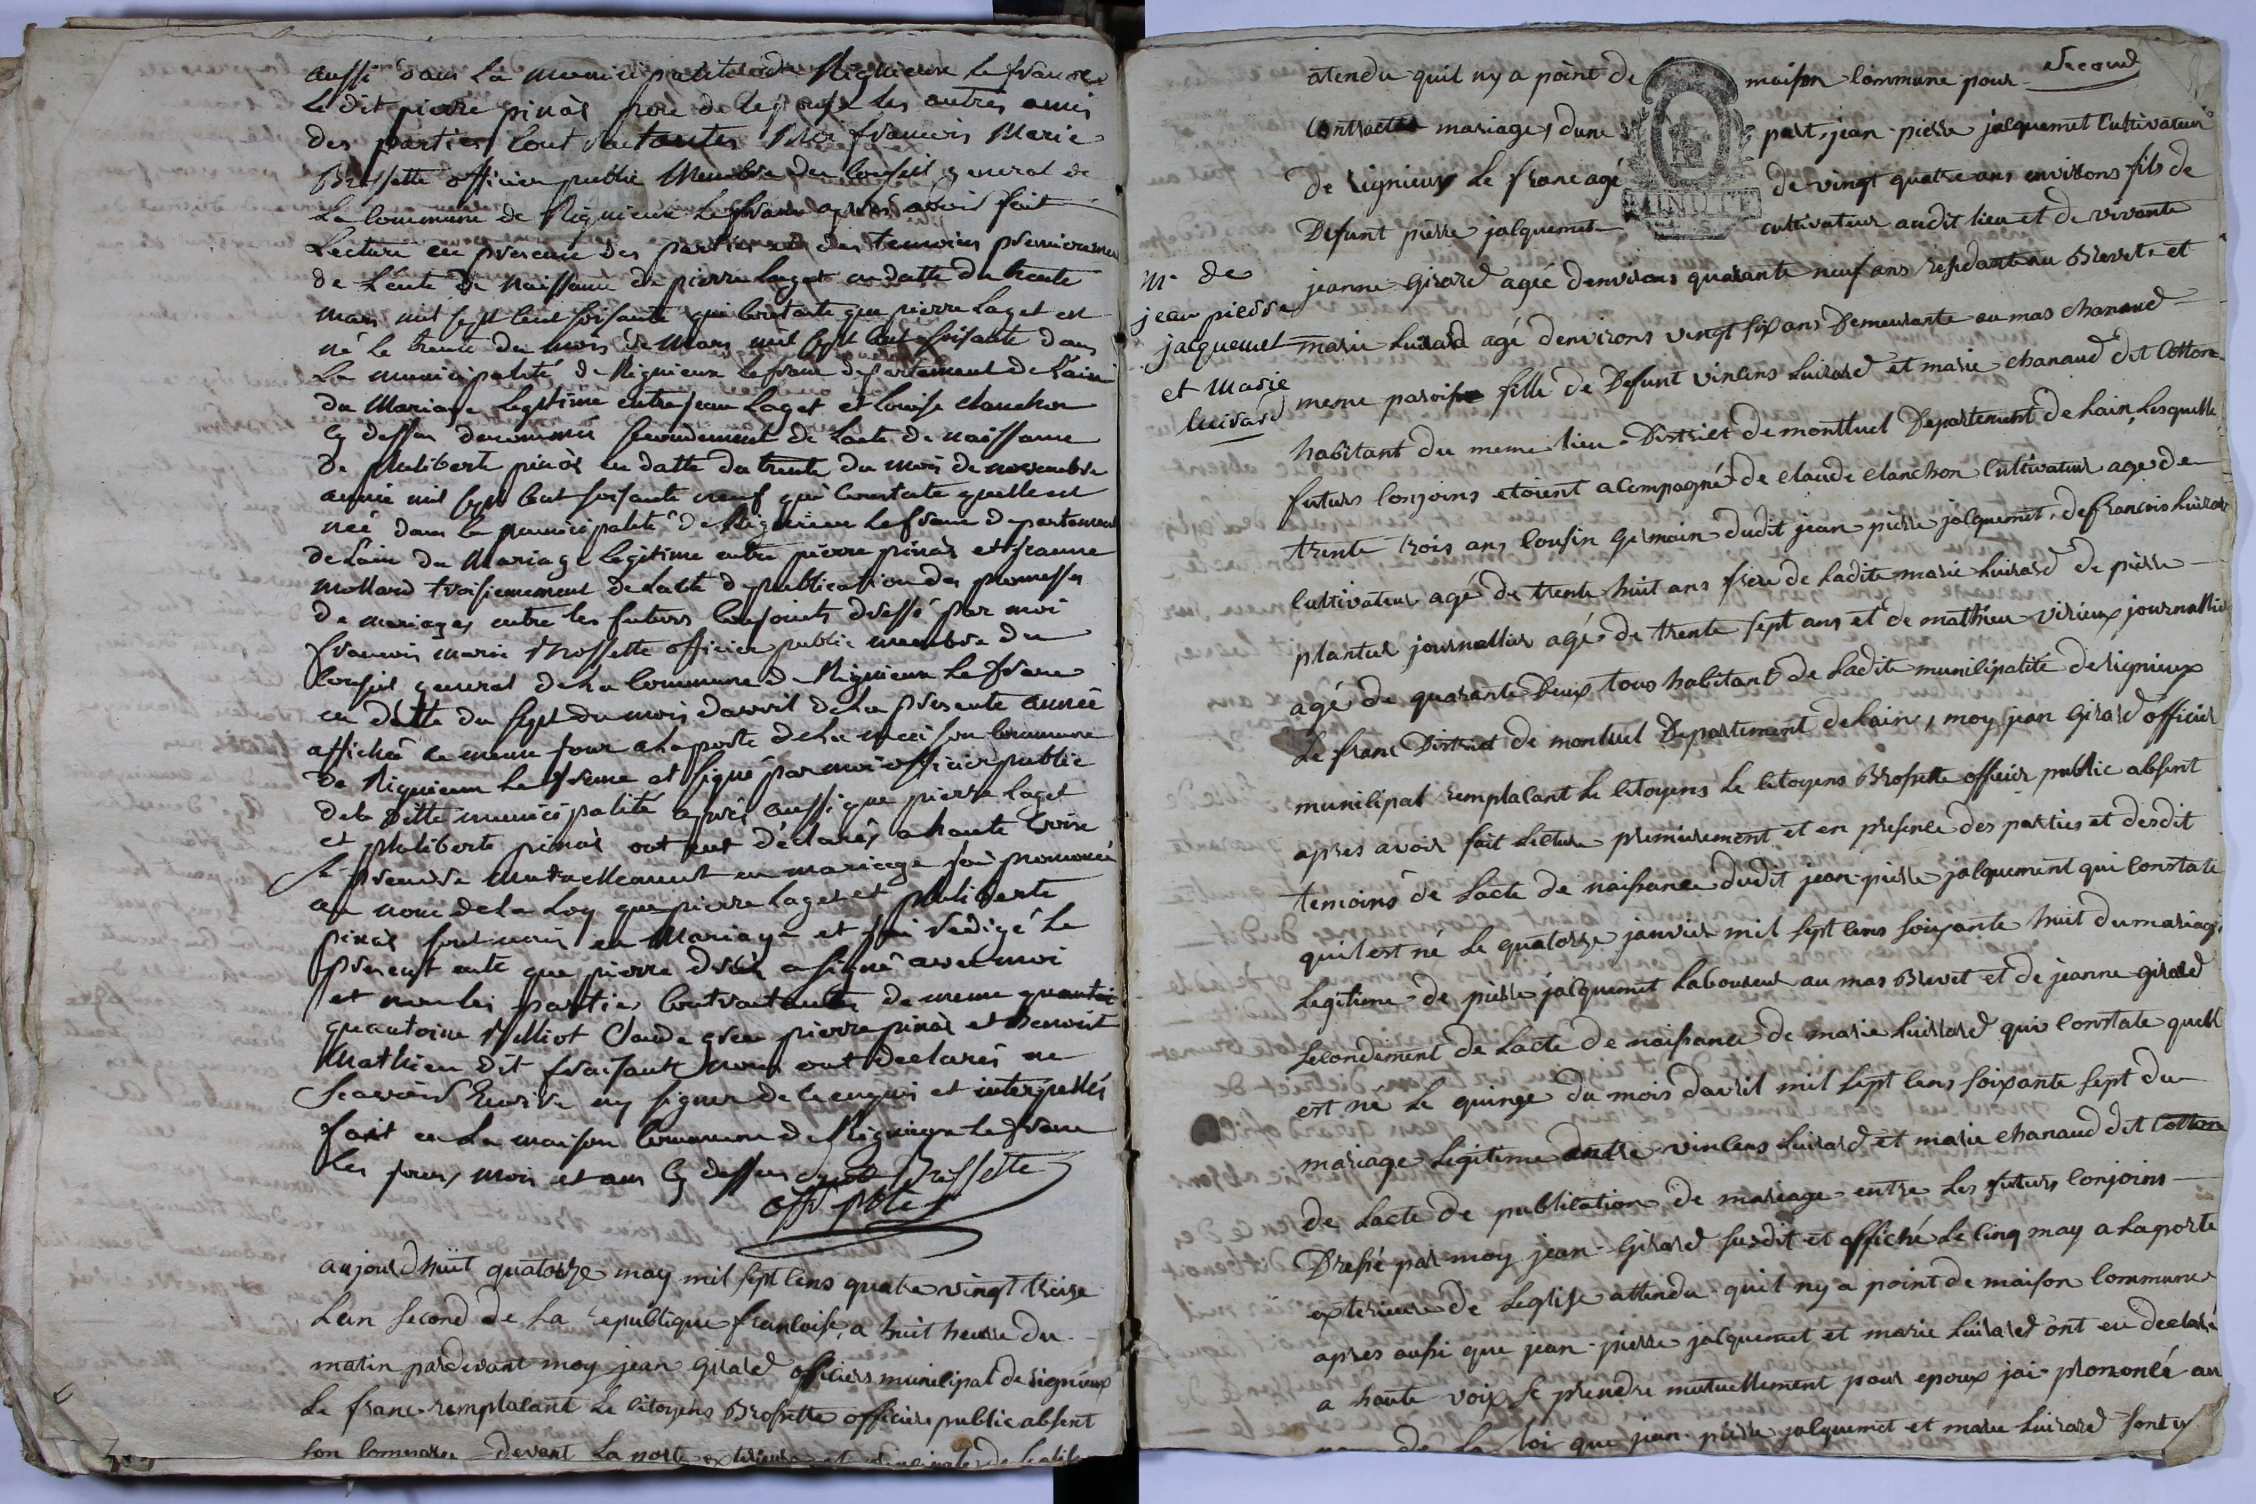 aussi dans la municipalité de Rignieux le franc
Ledit pierre pinâs pere de lepouse les autres amis
des parties contractantes Moi francois Marie
Brossette officier public Membre du Conseil general de
La Commune de Rignieux le franc apres avoir fait
Lecture en presence des parties et des temoins premierement
de L'acte de Naissance de pierre Laget en datte du trente
mars mil sept Cent soisante qui Constate que pierre Laget est
né le trente du mois de Mars mil sept Cent soisante dans
La municipalité de Rignieux le franc departement de Lain
du Mariage Legitime entre jean Laget et Louise Clanchon
Cy dessus denommés secondement de Lacte de naissance
De philiberte pinâs en datte du trente du mois de novembre
année mil sept Cent soisante neuf qui Constate quelle est
neé dans la municipalité de Rignieux le franc departement
de Lain du Mariage legitime entre pierre pinâs et jeanne
Mollard troisiemement de Lacte de publication des promesses
de mariages entre les futurs Conjoints dressé par moi
francois marie Brossette officier public membre du
Conseil general de La Commune de Rignieux Le franc
en datte du sept du mois davril de La presente année
affichée le meme jour a la porte de La maison Commune
de Rignieux Le franc et signé par moi officier public
de la ditte municipalité apres aussi que pierre Laget
et philiberte pinâs ont eut déclarés a haute voix
se prendre mutuellement en mariage j'ai prononcé
au nom de la Loy que pierre Laget et philiberte
pinâs sont unis en Mariage et j'ai redigé le
present acte que pierre a signé avec moi
et non les parties Contractantes de meme
qu'antoine Claude pierre pinâs et benoit
Mathieu dit fraisant nous ont declarés ne
scavoir Ecrire ny signer de ce enquis et interpellés
fait en La maison Commune de Rignieux Le franc
Les jour, mois et an Cy dessus Brossette
off. p.
aujourdhuit quatorze may mil sept cens quatre vingt treize
Lan second de La republique francoise, a huit heure du
matin pardevant moy jean girard officiers municipal de rignieux
Le franc remplacant Le citoyens Brossette officiere public absent
son devant La porte exterieure et principale de Leglise
atendu quil ny a point de maison Commune pour
second
Contracter mariage, dune part, jean pierre jacquemet Cultivateur
de rignieux Le franc agé de vingt quatre ans environs fils de
Defunt pierre jacquemet cultivateur audit lieu et de vivante
jeanne girard ageé denvirons quarante neuf ans residante au Brevet et
Mge de
jean pierre
jacquemet
et Marie
Luirard
marie Luirard agé denvirons vingt six ans Demeurante au mas chanaud
meme paroisse fille de Defunt vincens Luirard et marie chanaud dit Cotton
habitant du meme lieu District de montluel Departement de Lain, Lesquelle
futurs Conjoins etoient acompagné de claude clanchon Cultivateur age de
trente trois ans Cousin germain dudit jean pierre jacquemet, de francois Luirard
Cultivateur agé de trente huit ans frere de Ladite marie Luirard de pierre
plantier journallier agé de trente sept ans et de mathieu virieux journallier
agé de quarante Deux tous habitant de Ladite municipalité de rignieux
Le franc District de montluel Departement de Lain, moy jean girard officier
municipal remplacant Le citoyens Le citoyens Brossette officier public absent
apres avoir fait Lecture premierement et en presence des parties et desdit
temoins de Lacte de naissance dudit jean pierre jacquement qui Constate
quil est né Le quatorze janvier mil sept cens soixante huit du mariage
Legitime de pierre jacquemet Laboureur au mas Brevet et de jeanne girard
secondement de Lacte de naissance de marie Luirard qui Constate quelle
est né Le quinze du mois davril mil sept cens soixante sept du
mariage Legitime entre vincens Luirard et marie chanaud dit Cotton
de Lacte de publication de mariage entre Les futurs Conjoins
Dressé par moy jean girard susdit et affiché Le cinq may a Laporte
exterieure de Leglise attendu quil ny a point de maison Commune
apres aussi que jean pierre jacquemet et marie Luirard ont eu declaré
a haute voix se prendre mutuellement pour epoux jai prononcé au
nom de La loi que jean pierre jacquemet et marie Luirard sont